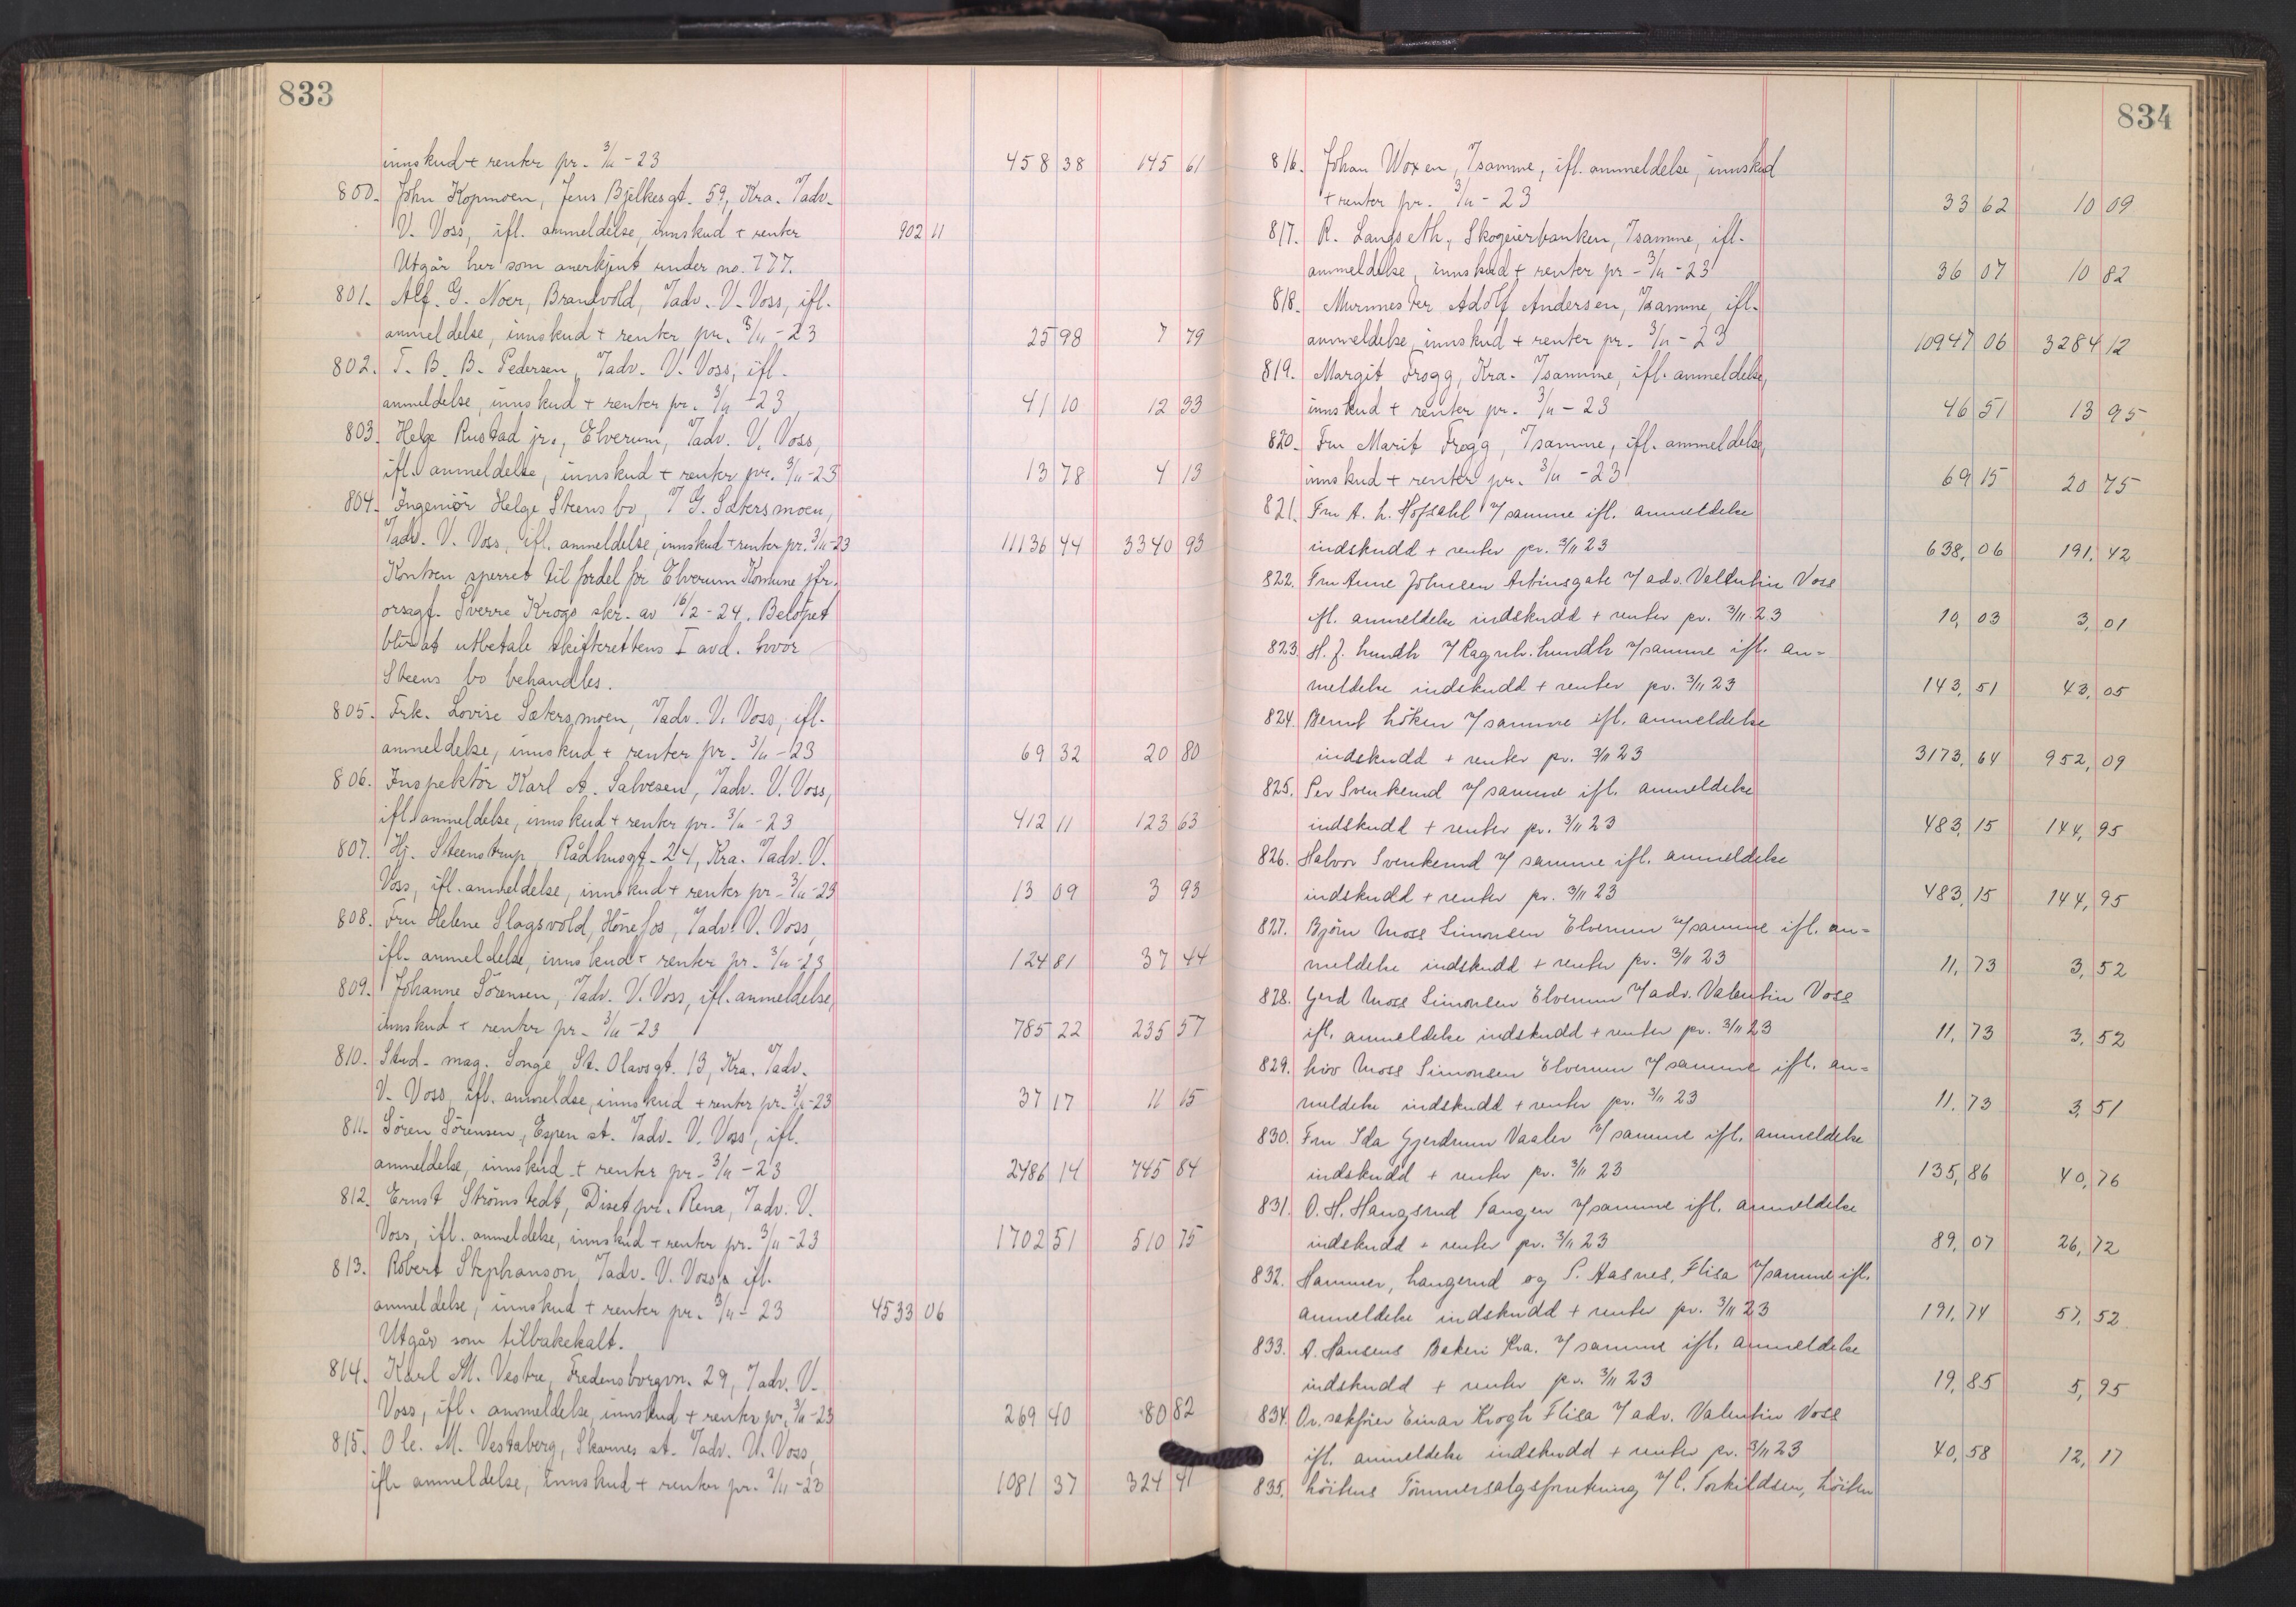 833
innskud + renter pr. 3/11 - 23 458 38 145 61
800. John Kopmoen, Jens Bjelkesgt. 59, Kra. 7adv.
V. Voss, ifl. anmeldelse, innskud + renter 902 11
Utgår her som anerkjent under no. 777.
801. Alf. G. Noer, Brandvold, 7adv. V. Voss, ifl.
anmeldelse, innskud + renter pr. 3/11 - 23 25 98 7 79
802. T. B. B. Pedersen, 7adv. V. Voss, ifl.
anmeldelse, innskud + renter pr. 3/11 - 23 41 10 12 33
803. Helge Rustad jr., Elverum, 7adv. V. Voss,
ifl. anmeldelse, innskud + renter pr. 3/11 - 23 13 78 4 13
804. Ingeniör Helge Steens bo, 7 G. Sætersmoen,
7adv. V. Voss, ifl. anmeldelse, innskud + renter pr. 3/11-23 11136 44 3340 93
Kontoen sperret til fordel for Elverum Komune jfr.
orsagf. Sverre Krogs skr. av 16/2 - 24. Belöpet
blir at utbetale skifterettens I avd. hvor
Steens bo behandles.
805. Frk. Lovise Sætersmoen, 7adv. V. Voss, ifl.
anmeldelse, innskud + renter pr. 3/11 - 23 69 32 20 80
806. Inspektör Karl A. Salvesen, 7adv. V. Voss,
ifl. anmeldelse, innskud + renter pr. 3/11 - 23 412 11 123 63
807. Hj. Steenstrup, Rådhusgt. 24, Kra. 7adv. V.
Voss, ifl. anmeldelse, innskud + renter pr. 3/11 - 23 13 09 3 93
808. Fru Helene Slagsvold, Hönefos, 7adv. V. Voss,
ifl. anmeldelse, innskud + renter pr. 3/11 - 23 124 81 37 44
809. Johanne Sörensen, 7adv. V. Voss, ifl. anmeldelse,
innskud + renter pr. 3/11 - 23 785 22 235 57
810. Stud. mag. Songe, St. Olavsgt. 13, Kra. 7adv.
V. Voss, ifl. anmeldse, innskud + renter pr. 3/11-23 37 17 11 15
811. Sören Sörensen, Espen st. 7adv. V. Voss, ifl.
anmeldelse, innskud + renter pr. 3/11 - 23 2486 14 745 84
812. Ernst Strömstedt, Diset pr. Rena, 7adv. V.
Voss, ifl. anmeldelse, innskud + renter pr. 3/11 - 23 1702 51 510 75
813. Robert Stephanson, 7adv. V. Voss, ifl.
anmeldelse, innskud + renter pr. 3/11 - 23 4533 06
Utgår som tilbakekalt.
814. Karl M. Vestre, Fredensborgvn. 29, 7adv. V.
Voss, ifl. anmeldelse, innskud + renter pr. 3/11 - 23 269 40 80 82
815. Ole. M. Vestaberg, Skarnes st. 7adv. V. Voss,
ifl. anmeldelse, innskud + renter pr. 3/11 - 23 1081 37 324 41
834
816. Johan Woxen, 7samme, ifl. anmeldelse, innskud
+ renter pr. 3/11 - 23 33 62 10 09
817. R. Langseth, Skogeierbanken, 7samme, ifl.
anmeldelse, innskud + renter pr. 3/11 - 23 36 07 10 82
818. Murmester Adolf Andersen, 7samme, ifl.
anmeldelse, innskud + renter pr. 3/11 - 23 10947 06 3284 12
819. Margit Frogg, Kra. 7samme, ifl. anmeldelse,
innskud + renter pr. 3/11 - 23 46 51 13 95
820. Fru Marit Frogg, 7samme, ifl. anmeldelse,
innskud + renter pr. 3/11 - 23 69 15 20 75
821. Fru A. L. Hofsahl 7/samme ifl. anmeldelse
indskudd + renter pr. 3/11 23 638, 06 191, 42
822. Fru Anne Johnsen Arbinsgate 7/adv. Valentin Voss
ifl. anmeldelse indskudd + renter pr. 3/11 23 10, 03 3, 01
823. H. J. Lundh 7/Ragnh. Lundh 7/samme ifl. an=
meldelse indskudd + renter pr. 3/11 23 143, 51 43, 05
824. Bernt Löken 7/samme ifl. anmeldelse
indskudd + renter pr. 3/11 23 3173, 64 952, 09
825. Per Svenkerud 7/samme ifl. anmeldelse
indskudd + renter pr. 3/11 23 483, 15 144, 95
826. Halvor Svenkerud 7/samme ifl. anmeldelse
indskudd + renter pr. 3/11 23 483, 15 144, 95
827. Björn Moss Simonsen Elverum 7/samme ifl. an=
meldelse indskudd + renter pr. 3/11 23 11, 73 3, 52
828. Gerd Moss Simonsen Elverum 7/adv. Valentin Voss
ifl. anmeldelse indskudd + renter pr. 3/11 23 11, 73 3, 52
829. Liv Moss Simonsen Elverum 7/samme ifl. an=
meldelse indskudd + renter pr. 3/11 23 11, 73 3, 51
830. Fru Ida Gjerdrum Vaaler 7/samme ifl. anmeldelse
indskudd + renter pr. 3/11 23 135, 86 40, 76
831. O. H. Haugsrud Tangen 7/samme ifl. anmeldelse
indskudd + renter pr. 3/11 23 89, 07 26, 72
832. Hammer, Langerud og P. Aasnes, Flisa 7/samme ifl.
anmeldelse indskudd + renter pr. 3/11 23 191, 74 57, 52
833. A. Hansens Bakeri Kra. 7/samme ifl. anmeldelse
indskudd + renter pr. 3/11 23 19, 85 5, 95
834. Or. sakförer Einar Krogh Flisa 7/adv. Valentin Voss
ifl. anmeldelse indskudd + renter pr. 3/11 23 40, 58 12, 17
835. Löitens Tömmersalgsforretning 7/C. Torkildsen, Löiten